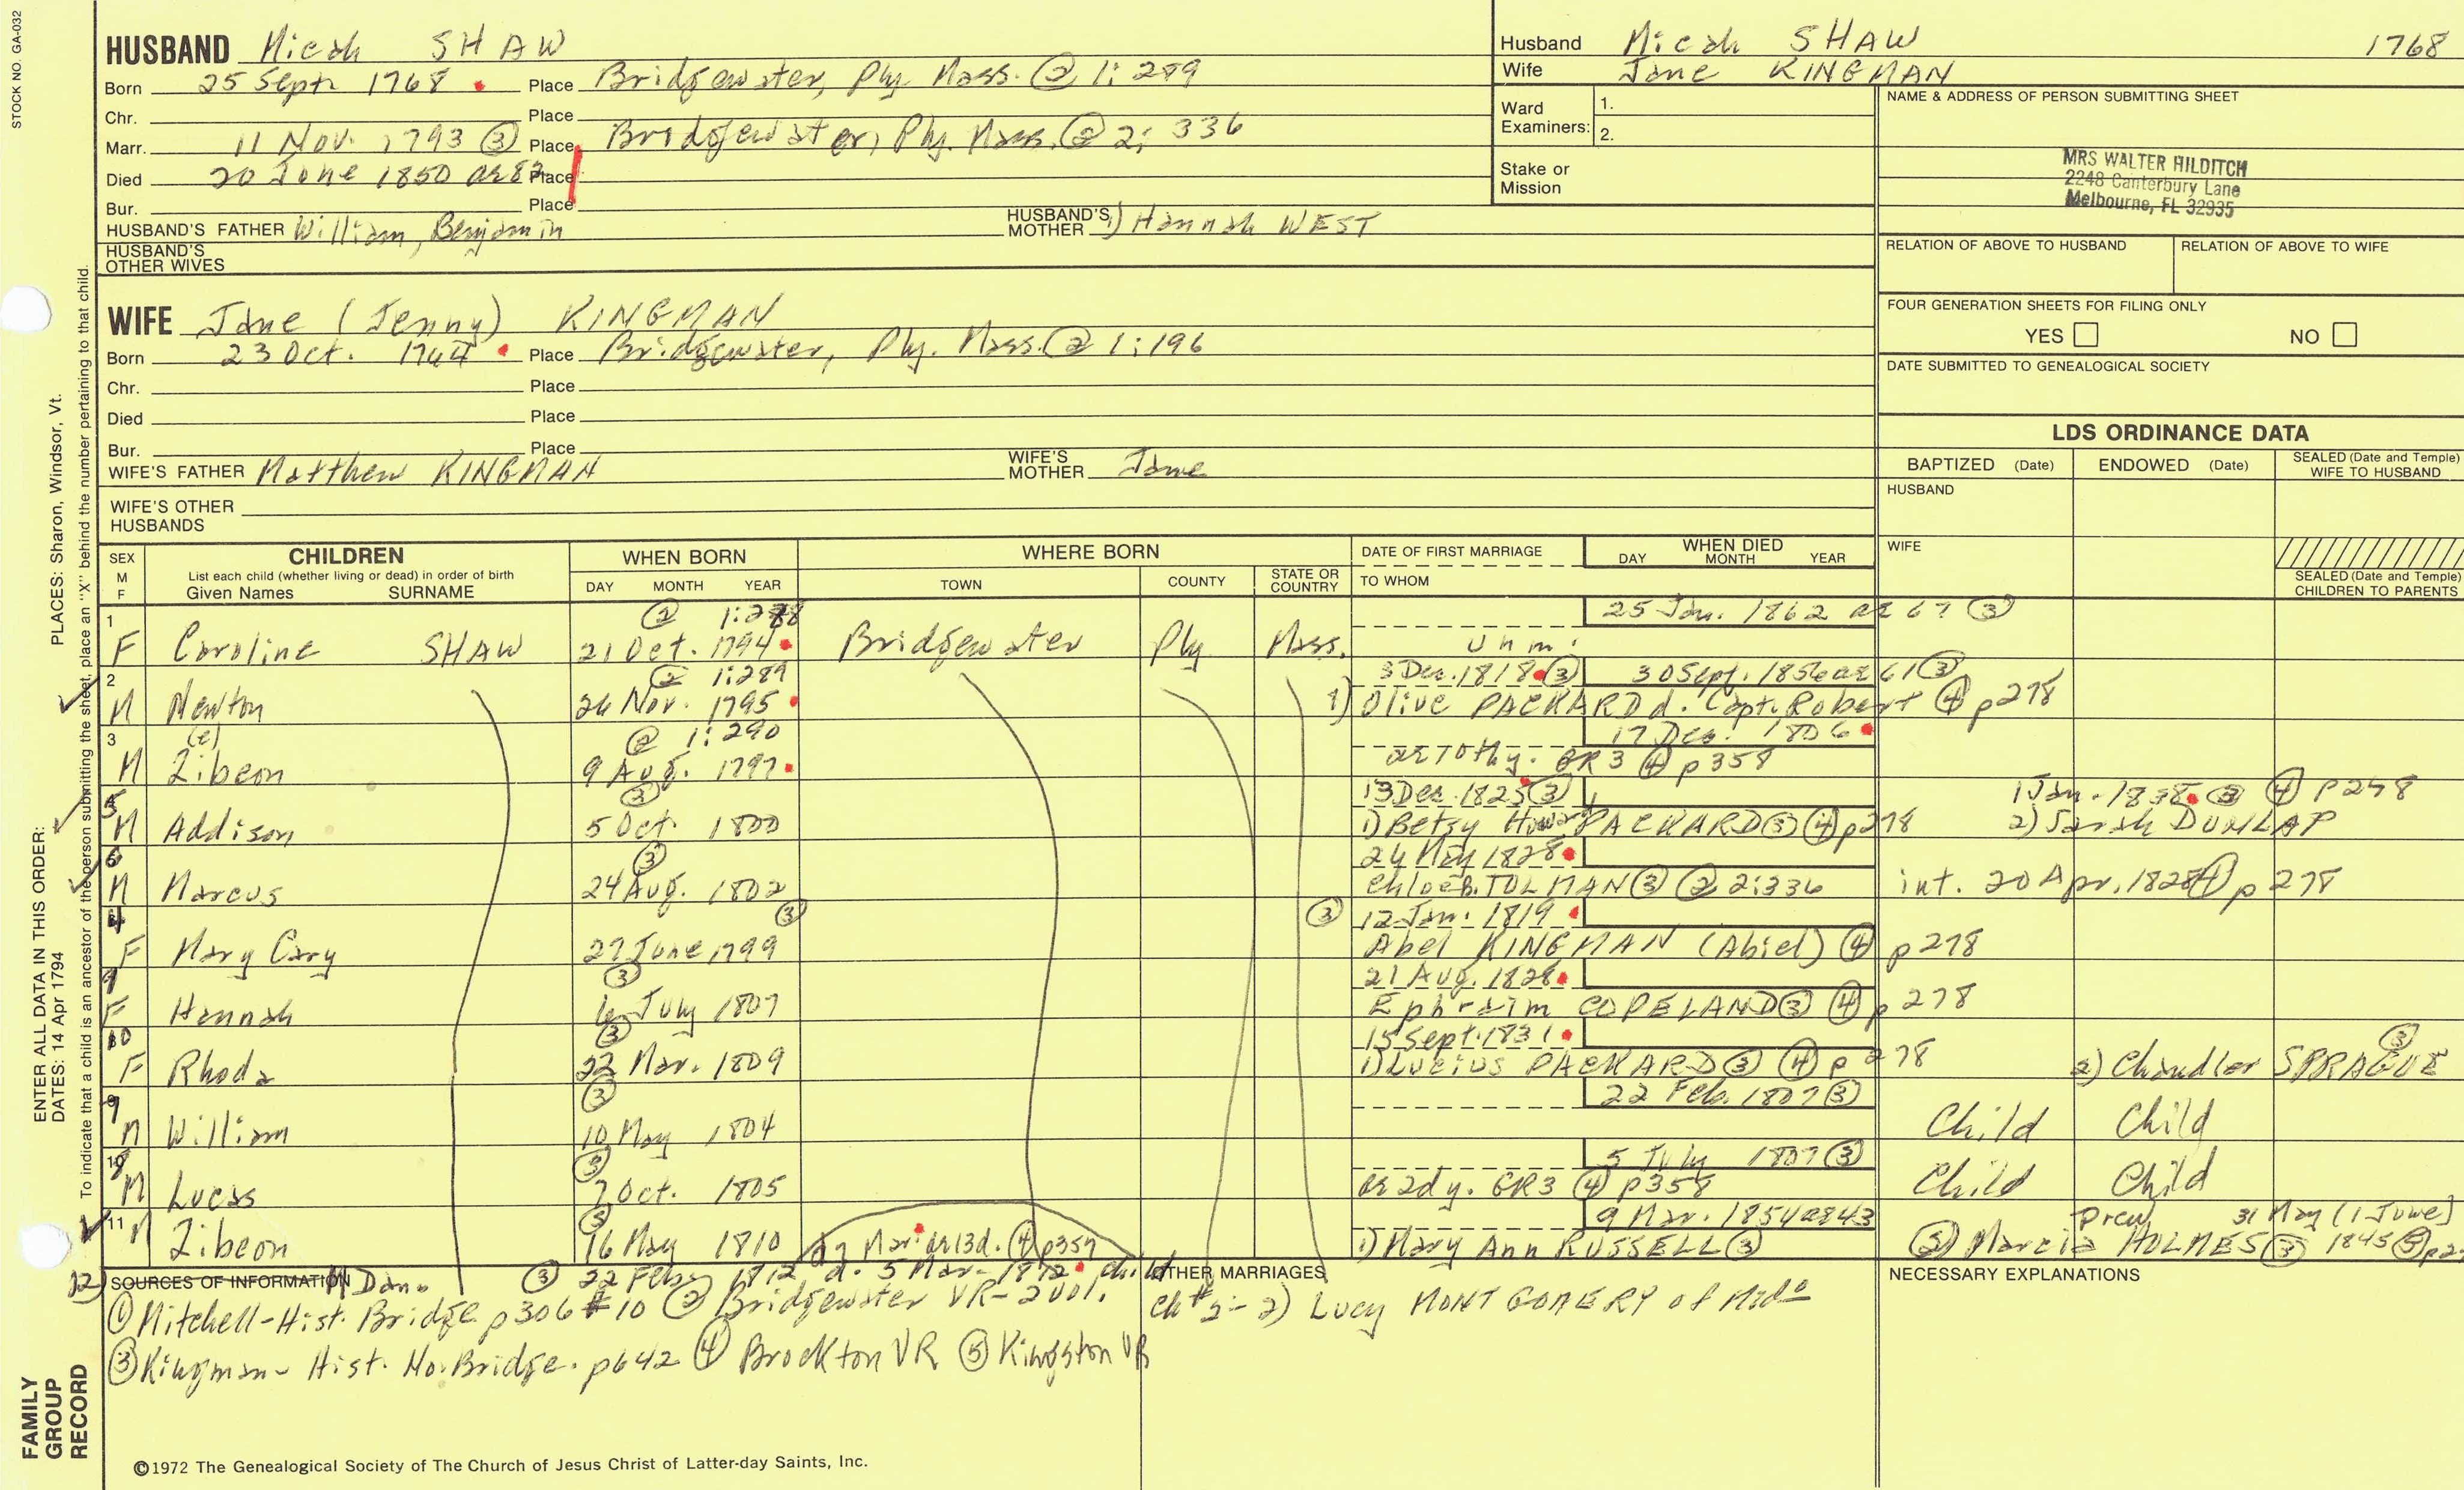 STOCK NO. GA-032
HUSBAND Micah SHAW
Born 25 Sept. 1768 Place Bridgewater, Ply. Mass. ② 1:289
Chr. Place
Marr. 11 Nov. 1793 ③ Place Bridgewater, Ply. Mass. ② 2:336
Died 20 June 1850 ae 82 Place
Bur. Place
HUSBAND'S FATHER William, Benjamin HUSBAND'S MOTHER 1) Hannah WEST
HUSBAND'S OTHER WIVES
Husband Micah SHAW 1768
Wife Jane KINGMAN
Ward Examiners: 1.
2.
Stake or Mission
NAME & ADDRESS OF PERSON SUBMITTING SHEET
MRS WALTER HILDITCH
2248 Canterbury Lane
Melbourne, FL 32935
RELATION OF ABOVE TO HUSBAND RELATION OF ABOVE TO WIFE
FOUR GENERATION SHEETS FOR FILING ONLY
YES NO
DATE SUBMITTED TO GENEALOGICAL SOCIETY
WIFE Jane (Jenny) KINGMAN
Born 23 Oct. 1764 Place Bridgewater, Ply. Mass. ② 1:196
Chr. Place
Died Place
Bur. Place
WIFE'S FATHER Matthew KINGMAN WIFE'S MOTHER Jane
WIFE'S OTHER HUSBANDS
LDS ORDINANCE DATA
BAPTIZED (Date) ENDOWED (Date) SEALED (Date and Temple) WIFE TO HUSBAND
HUSBAND
WIFE
SEALED (Date and Temple) CHILDREN TO PARENTS
SEX M F CHILDREN WHEN BORN WHERE BORN DATE OF FIRST MARRIAGE WHEN DIED
List each child (whether living or dead) in order of birth
Given Names SURNAME DAY MONTH YEAR TOWN COUNTY STATE OR COUNTRY TO WHOM DAY MONTH YEAR
1 ② 1:288 25 Jan. 1862 ae 67 ③
F Caroline SHAW 21 Oct. 1794 Bridgewater Ply Mass. unm.
2 ② 1:289 3 Dec. 1818 ③ 30 Sept. 1856 ae 61 ③
M Newton 26 Nov. 1795 1) Olive PACKARD d. Capt. Robert ④ p278
3 (e) ② 1:290 17 Dec. 1806
M Zibeon 9 Aug. 1797 ae 10thy. GR3 ④ p358
5 ③ 13 Dec. 1825 ③ 1 Jan. 1838 ③ ④ p248
M Addison 5 Oct. 1800 1) Betsy Howard PACKARD ③ ④ p278 2) Sarah DUNLAP
6 ③ 24 May 1828
M Marcus 24 Aug. 1802 Chloe B. TOLMAN ③ ② 2:336 int. 20 Apr. 1828 ④ p278
4 ③ ③ 12 Jan. 1819
F Mary Cary 27 June 1799 Abel KINGMAN (Abiel) ④ p278
9 ③ 21 Aug. 1828
F Hannah 6 July 1807 Ephraim COPELAND ③ ④ p278
10 ③ 15 Sept. 1831 ③
F Rhoda 22 Mar. 1809 1) Lucius PACKARD ③ ④ p278 2) Chandler SPRAGUE
③ 22 Feb. 1807 ③
M William 10 May 1804 Child Child
8 ③ 5 July 1807 ③
M Lucas 7 Oct. 1805 ae 2dy. GR3 ④ p358 Child Child
11 ③ 9 Mar. 1854 ae 43 Prev 31 May (1 June)
M Zibeon 16 May 1810 Mar. ae 13d. ④ p357 1) Mary Ann RUSSELL ③ Marcia HOLMES ③ 1845 ⑤ p2
12) M Dan. ③ 22 Feb. 1812 d. 5 Mar. 1812 child
SOURCES OF INFORMATION
① Mitchell-Hist. Bridge p306 #10 ② Bridgewater VR-2vol.
③ Kingman- Hist. No. Bridge. p642 ④ Brockton VR ⑤ Kingston VR
OTHER MARRIAGES
ch #2- 2) Lucy MONTGOMERY of
NECESSARY EXPLANATIONS
©1972 The Genealogical Society of The Church of Jesus Christ of Latter-day Saints, Inc.
FAMILY GROUP RECORD
ENTER ALL DATA IN THIS ORDER: PLACES: Sharon, Windsor, Vt.
DATES: 14 Apr 1794
To indicate that a child is an ancestor of the person submitting the sheet, place an "X" behind the number pertaining to that child.